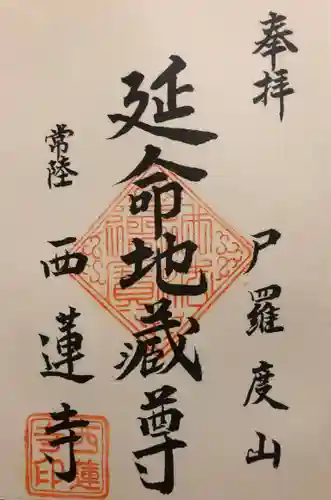 奉拝
尸羅度山
延命地蔵尊
常陸
西蓮寺
西蓮
寺印